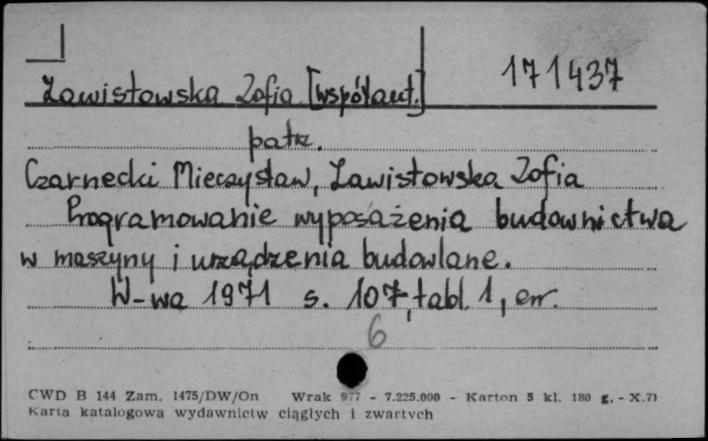 Zawistowska Zofia [współaut.] 171437
patrz.
Czarnecki Mieczysław, Zawistowska Zofia
Programowanie wyposażenia budownictwa
w maszyny i urządzenia budowlane.
W-wa 1971 s. 107, tabl. 1, err.
6
CWD B 144 Zam. 1475/DW/On Wrak 977 - 7.225.000 - Karton 5 kl. 180 g. - X.71
Karta katalogowa wydawnictw ciągłych i zwartych